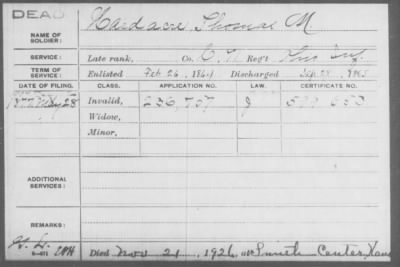 DEAD
NAME OF SOLDIER: Hardacre, Thomas M
SERVICE: Late rank, Co. Reg't Inf.
TERM OF SERVICE: Enlisted Feb 26, 1864 Discharged Sep. 1865
DATE OF FILING. CLASS. APPLICATION NO. LAW. CERTIFICATE NO.
28 Invalid, 236,757
Widow,
Minor,
ADDITIONAL SERVICES:
REMARKS:
Died Nov 21, 1926, at Smith Center, Kans